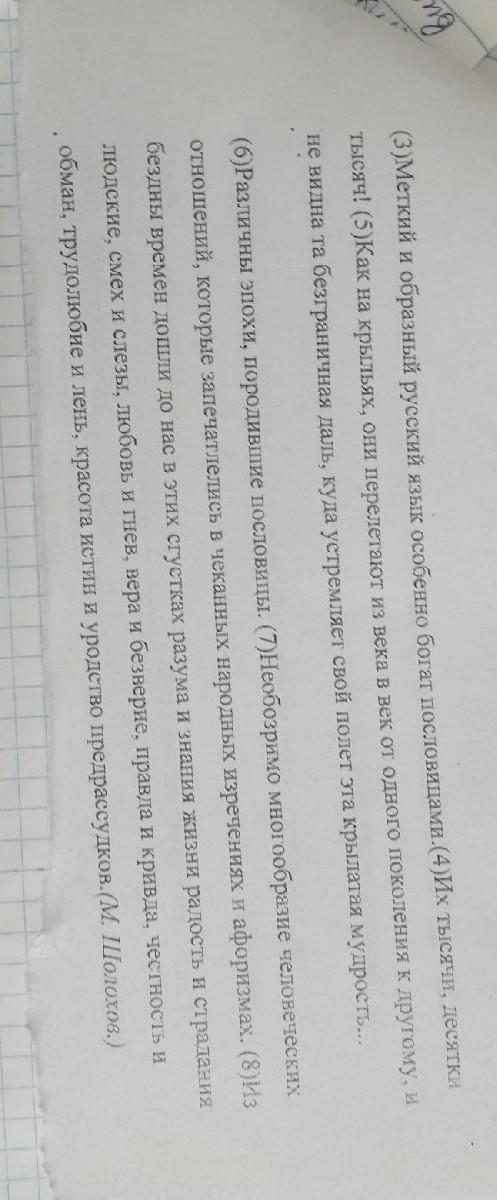 (3)Меткий и образный русский язык особенно богат пословицами.(4)Их тысячи, десятки
тысяч! (5)Как на крыльях, они перелетают из века в век от одного поколения к другому, и
не видна та безграничная даль, куда устремляет свой полет эта крылатая мудрость...
(6)Различны эпохи, породившие пословицы. (7)Необозримо многообразие человеческих
отношений, которые запечатлелись в чеканных народных изречениях и афоризмах. (8)Из
бездны времен дошли до нас в этих сгустках разума и знания жизни радость и страдания
людские, смех и слезы, любовь и гнев, вера и безверие, правда и кривда, честность и
обман, трудолюбие и лень, красота истин и уродство предрассудков.(М. Шолохов.)